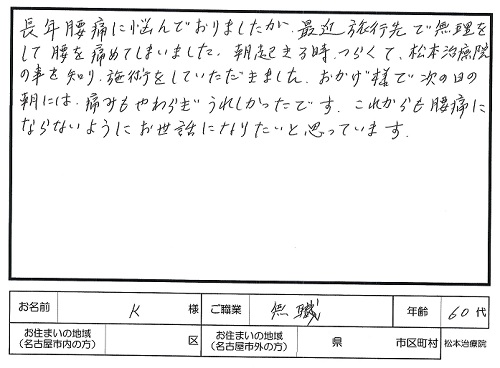 長年腰痛に悩んでおりましたが、最近旅行先で無理を
して腰を痛めてしまいました。朝起きる時、つらくて、松本治療院
の事を知り、施術をしていただきました。おかげ様で次の日の
朝には、痛みもやわらぎうれしかったです。これからも腰痛に
ならないようにお世話になりたいと思っています。
お名前 K 様 ご職業 無職 年齢 60代
お住まいの地域 (名古屋市内の方) 区 お住まいの地域 (名古屋市外の方) 県 市区町村 松本治療院